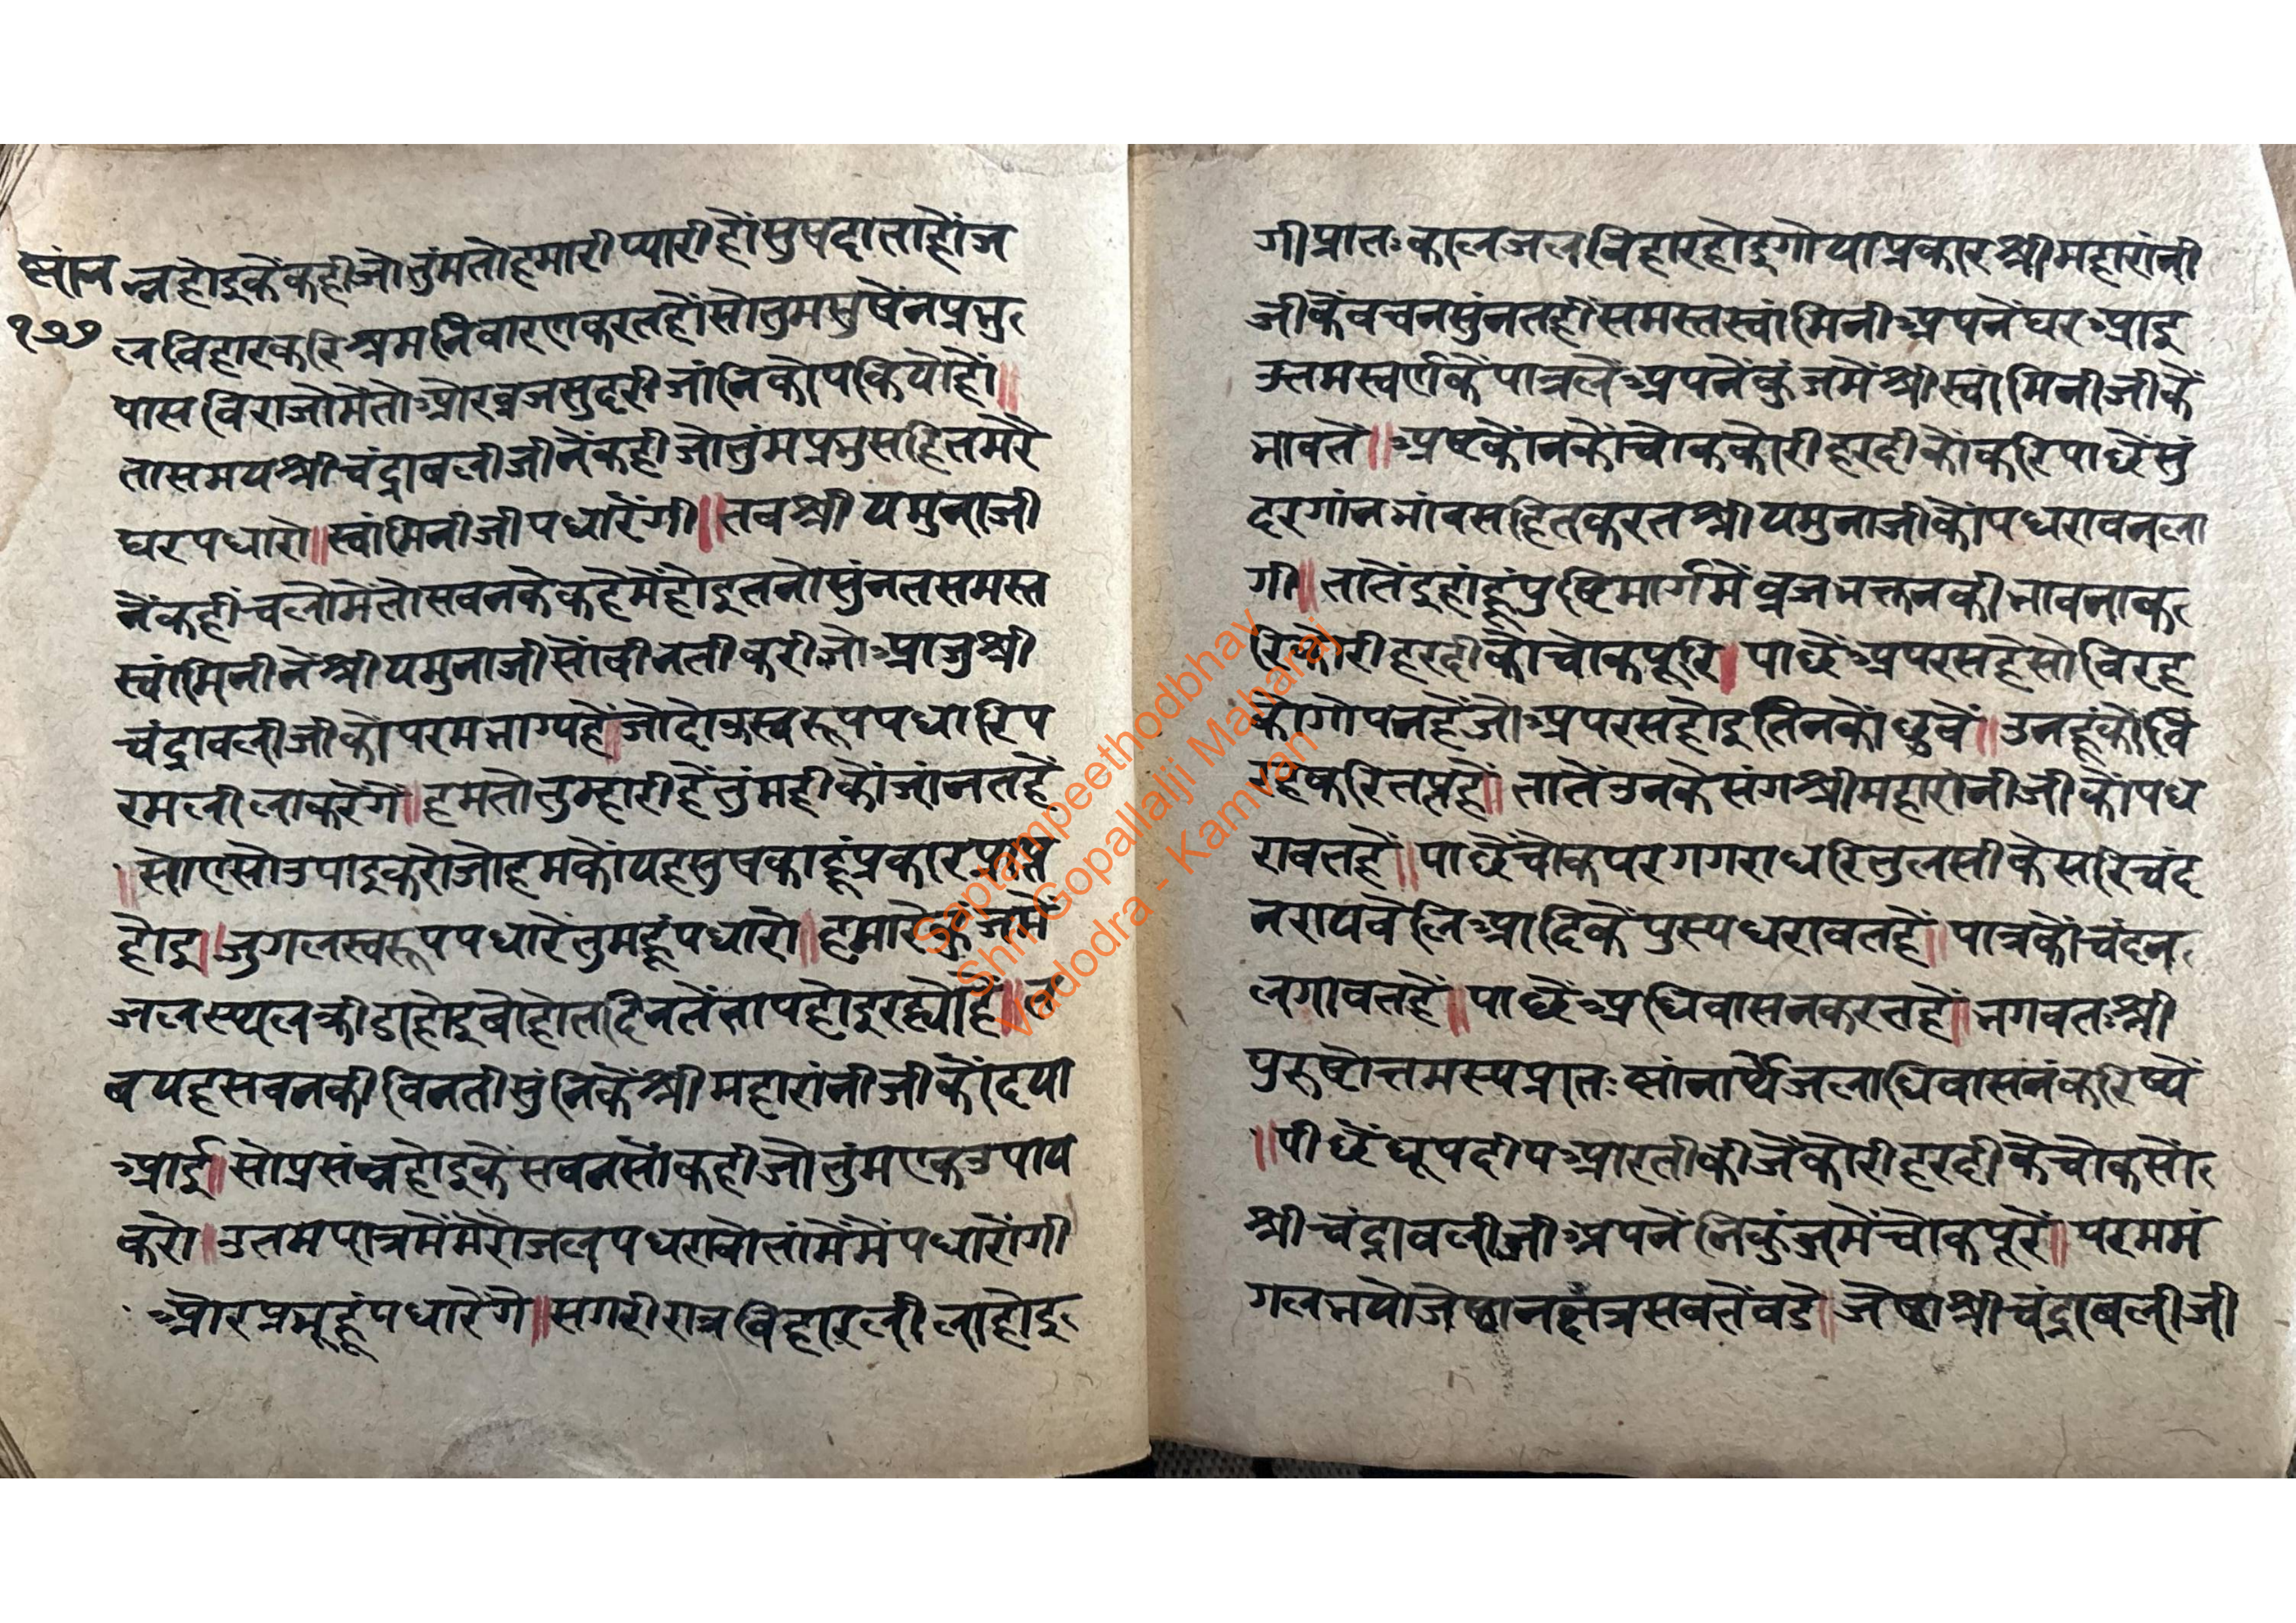 स्नांन
१७७
न्नहोइकेंकहीजोतुंमतोहमारीप्यारीहौंसुषदाताहोंज
लविहारकरिश्रमनिवारणकरतहौंसोतुमसुषेंनप्रभु
पासविराजोमेंतोओरव्रजसुदरीजांनिकोपकियोहों॥
तासमयश्रीचंद्रावलीजीनेंकहीजोतुंमप्रभुसहितमेरे
घरपधारो॥स्वांमिनीजीपधारेंगी॥तबश्रीयमुनाजी
नेंकहींचलोमेंतोसबनकेकहेमेंहोइतनोसुंनतसमस्त
स्वांमिनीनेंश्रीयमुनाजीसोंवीनतीकरीजोआजुश्री
चंद्रावलीजीकोपरमभाग्यहें॥जोदोऊस्वरूपपधारिप
रमलीलाकरेंगे॥हमतोतुम्हारीहेंतुंमहीकोंजांनतहें
॥सोएसोउपाइकरोजोहमकोंयहसुषकाहूंप्रकारप्राप्त
होइ॥जुगलस्वरूपपधारेंतुमहूंपधारो॥हमारेकुंजमें
जलस्थलक्रीडाहोइबोहोतदिनतेंतापहोइरह्योहें॥त
बयहसबनकीविनतीसुंनिकेंश्रीमहारांनीजीकोंदया
आई॥सोप्रसंन्नहोइकेंसबनसोंकहीजोतुंमएकउपाय
करो॥उतमपात्रमेंमेरोजलपधरावोतांमेंमेंपधारोंगी
ओरप्रभूहूंपधारेंगे॥सगरीरात्रविहारलीलाहोइ
गीप्रातःकालजलविहारहोइगोयाप्रकारश्रीमहारांनी
जीकेंवचनसुंनतहींसमस्तस्वांमिनीअपनेंघरआइ
उत्तमस्वर्णकेंपात्रलेंअपनेंकुंजमेंश्रीस्वांमिनीजीकें
भावतें॥अष्टकोंनकोंचोककोरीहरदीकोंकरिपाछेंसुं
दरगांनभांवसहितकरतश्रीयमुनाजीकोंपधरावनला
गी॥तातेंइहांहूंपुष्टिमार्गमेंव्रजभक्तनकीभावनाक
रिकोरीहरदीकोचोकपूरि॥पाछेंअपरसहेसोविरह
कोगोपनहेंजोअपरसहोइतिनकोंछुवें॥उनहूंकोवि
रहकरितप्तहें॥तातेंउनकेसंगश्रीमहारांनीजीकोंपध
रावतहें॥पाछेंचोकपरगगराधरितुलसीकेसरिचंद
नरायवेलिआदिकेंपुस्पधरावतहें॥पात्रकोंचंदन
लगावतहें॥पाछेंअधिवासनकरतहें॥भगवतःश्री
पुरुषोत्तमस्यप्रातःस्नांनार्थंजलाधिवासनंकरिष्यें
॥पीछेंधूपदीपआरतीकीजेंकोरीहरदीकेचोकसों
श्रीचंद्रावलीजीअपनेंनिकुंजमेंचोकपूरें॥परममं
गलभयोजेष्ठानक्षत्रसबतेंबडे॥जेष्ठाश्रीचंद्राबलीजी
Saptampeethodbhav
Shri Gopallalji Maharaj
Vadodra - Kamvan